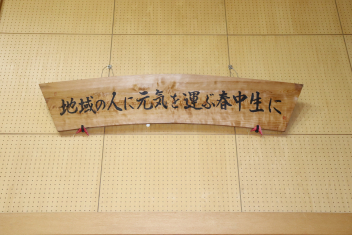 地域の人に元気を運ぶ春中生に